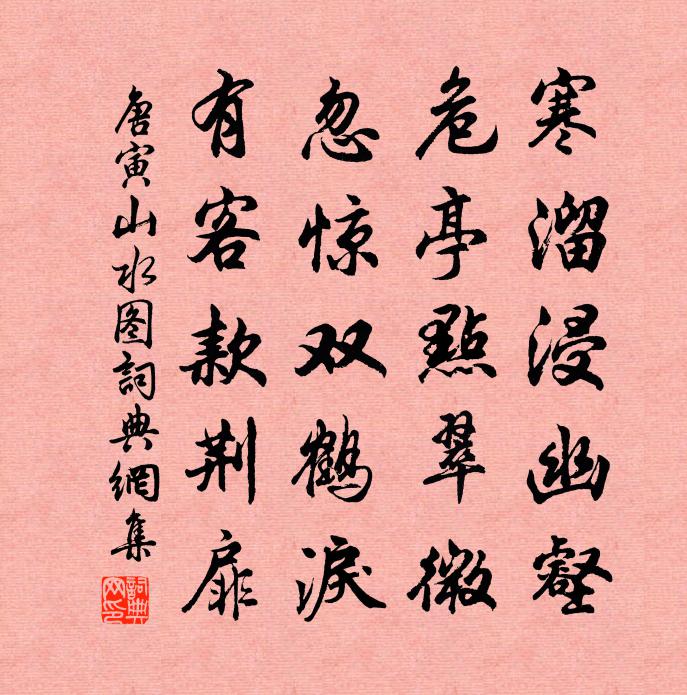 寒溜浸幽壑
危亭點翠微
忽惊双鶴淚
有客款荆扉
唐寅山水图詞典網集
詞典网印